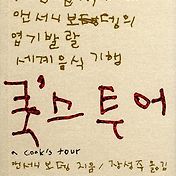 앤서니 보뎅의
엽기발랄
세계음식 기행
쿡'스 투어
a cook's tour
앤서니 보뎅 지음/장성주 옮김